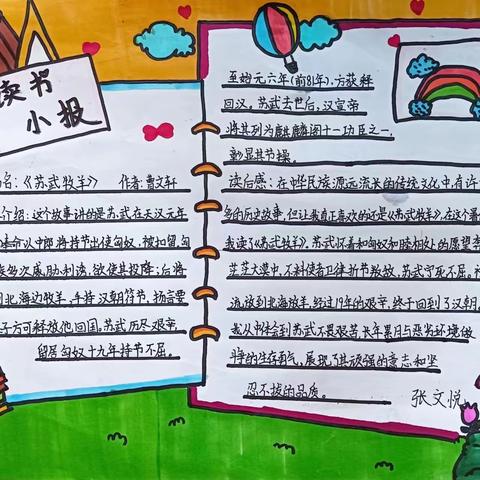 读书
小报
名：《苏武牧羊》 作者：曹文轩
介绍：这个故事讲的是苏武在天汉元年
奉命以中郎将持节出使匈奴，被扣留，匈
奴多次威胁利诱，欲使其投降；后将
到北海边牧羊，手持汉朝符节，扬言要
子方可释放他回国，苏武历尽艰辛，
留居匈奴十九年持节不屈。
至始元六年(前81年)，方获释
回汉，苏武去世后，汉宣帝
将其列为麒麟阁十一功臣之一，
彰显其节操。
读后感：在中华民族源远流长的传统文化中，有许
多的历史故事，但让我真正喜欢的还是《苏武牧羊》，在这个暑
我读了《苏武牧羊》，苏武怀着和匈奴和睦相处的愿望李
茫茫大漠中，不料使者卫律折节叛敌，苏武宁死不屈。被
流放到北海放羊，经过19年的艰辛，终于回到了汉朝，
我从中体会到苏武不畏艰苦，长年累月与恶劣环境做
斗争的生存勇气，展现了其顽强的意志和坚
忍不拔的品质。
张文悦